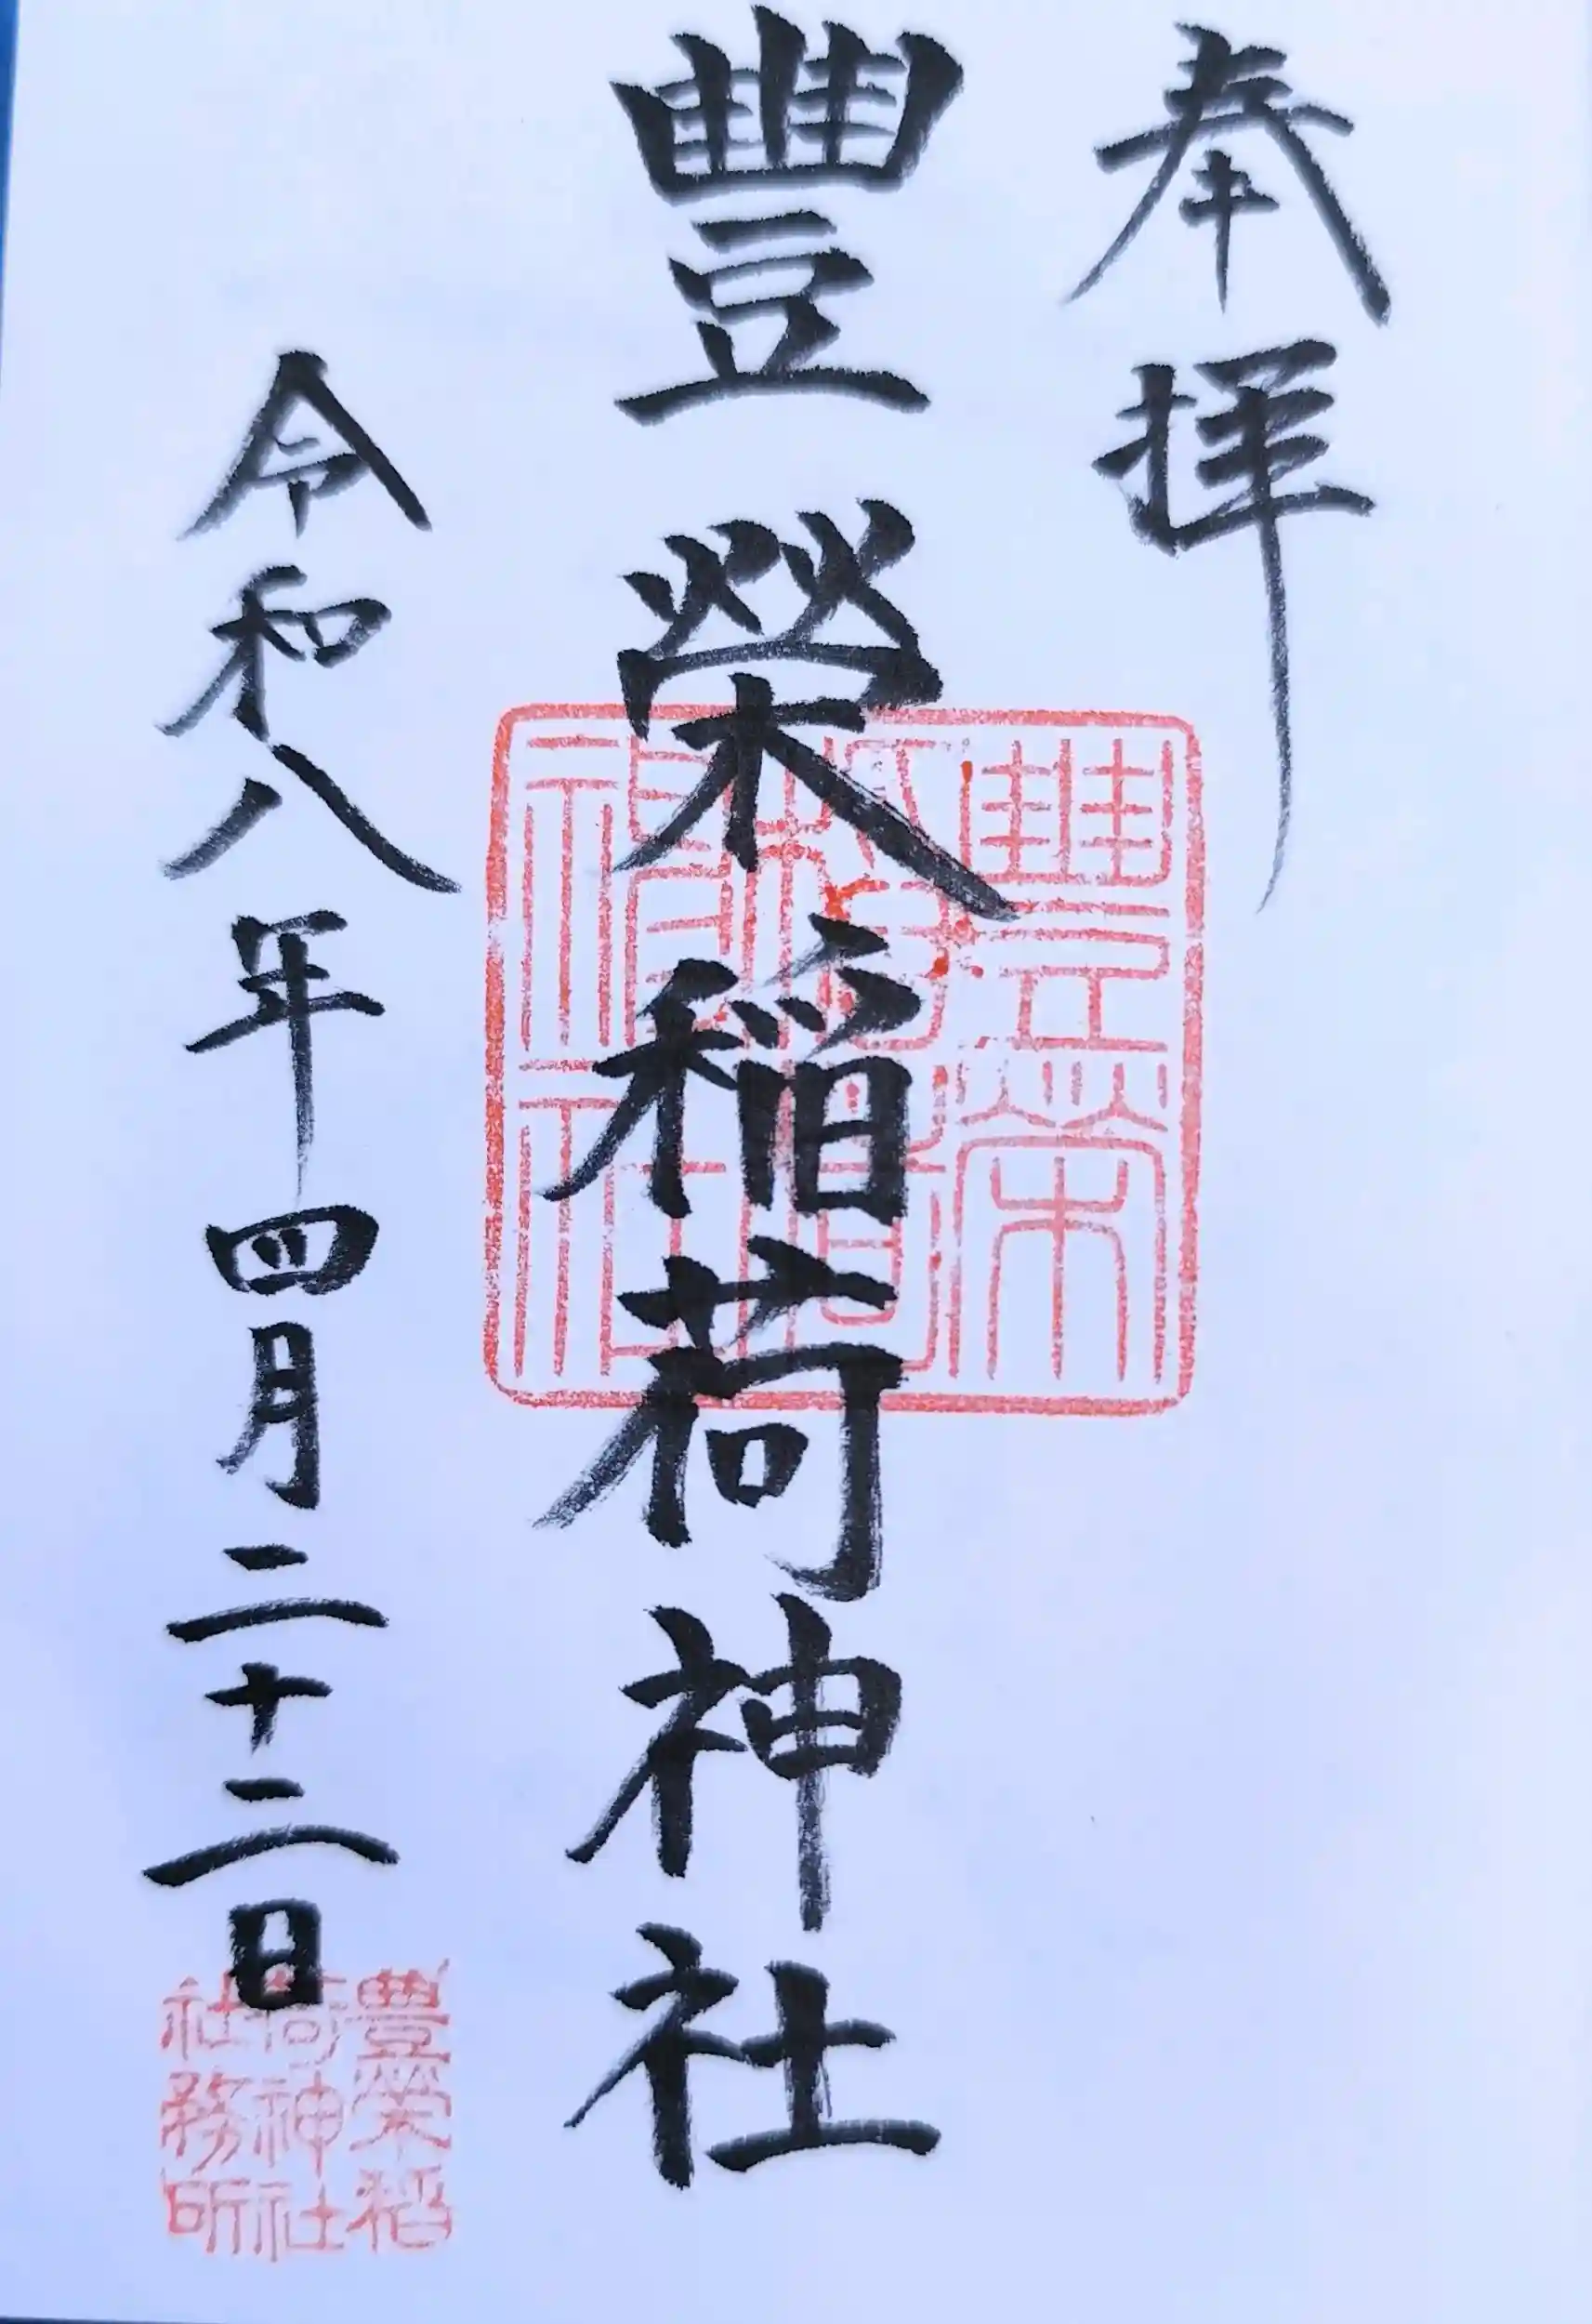 奉拝
豐榮稲荷神社
豐榮稲荷神社
令和八年四月二十二日
豊榮稲荷神社社務所